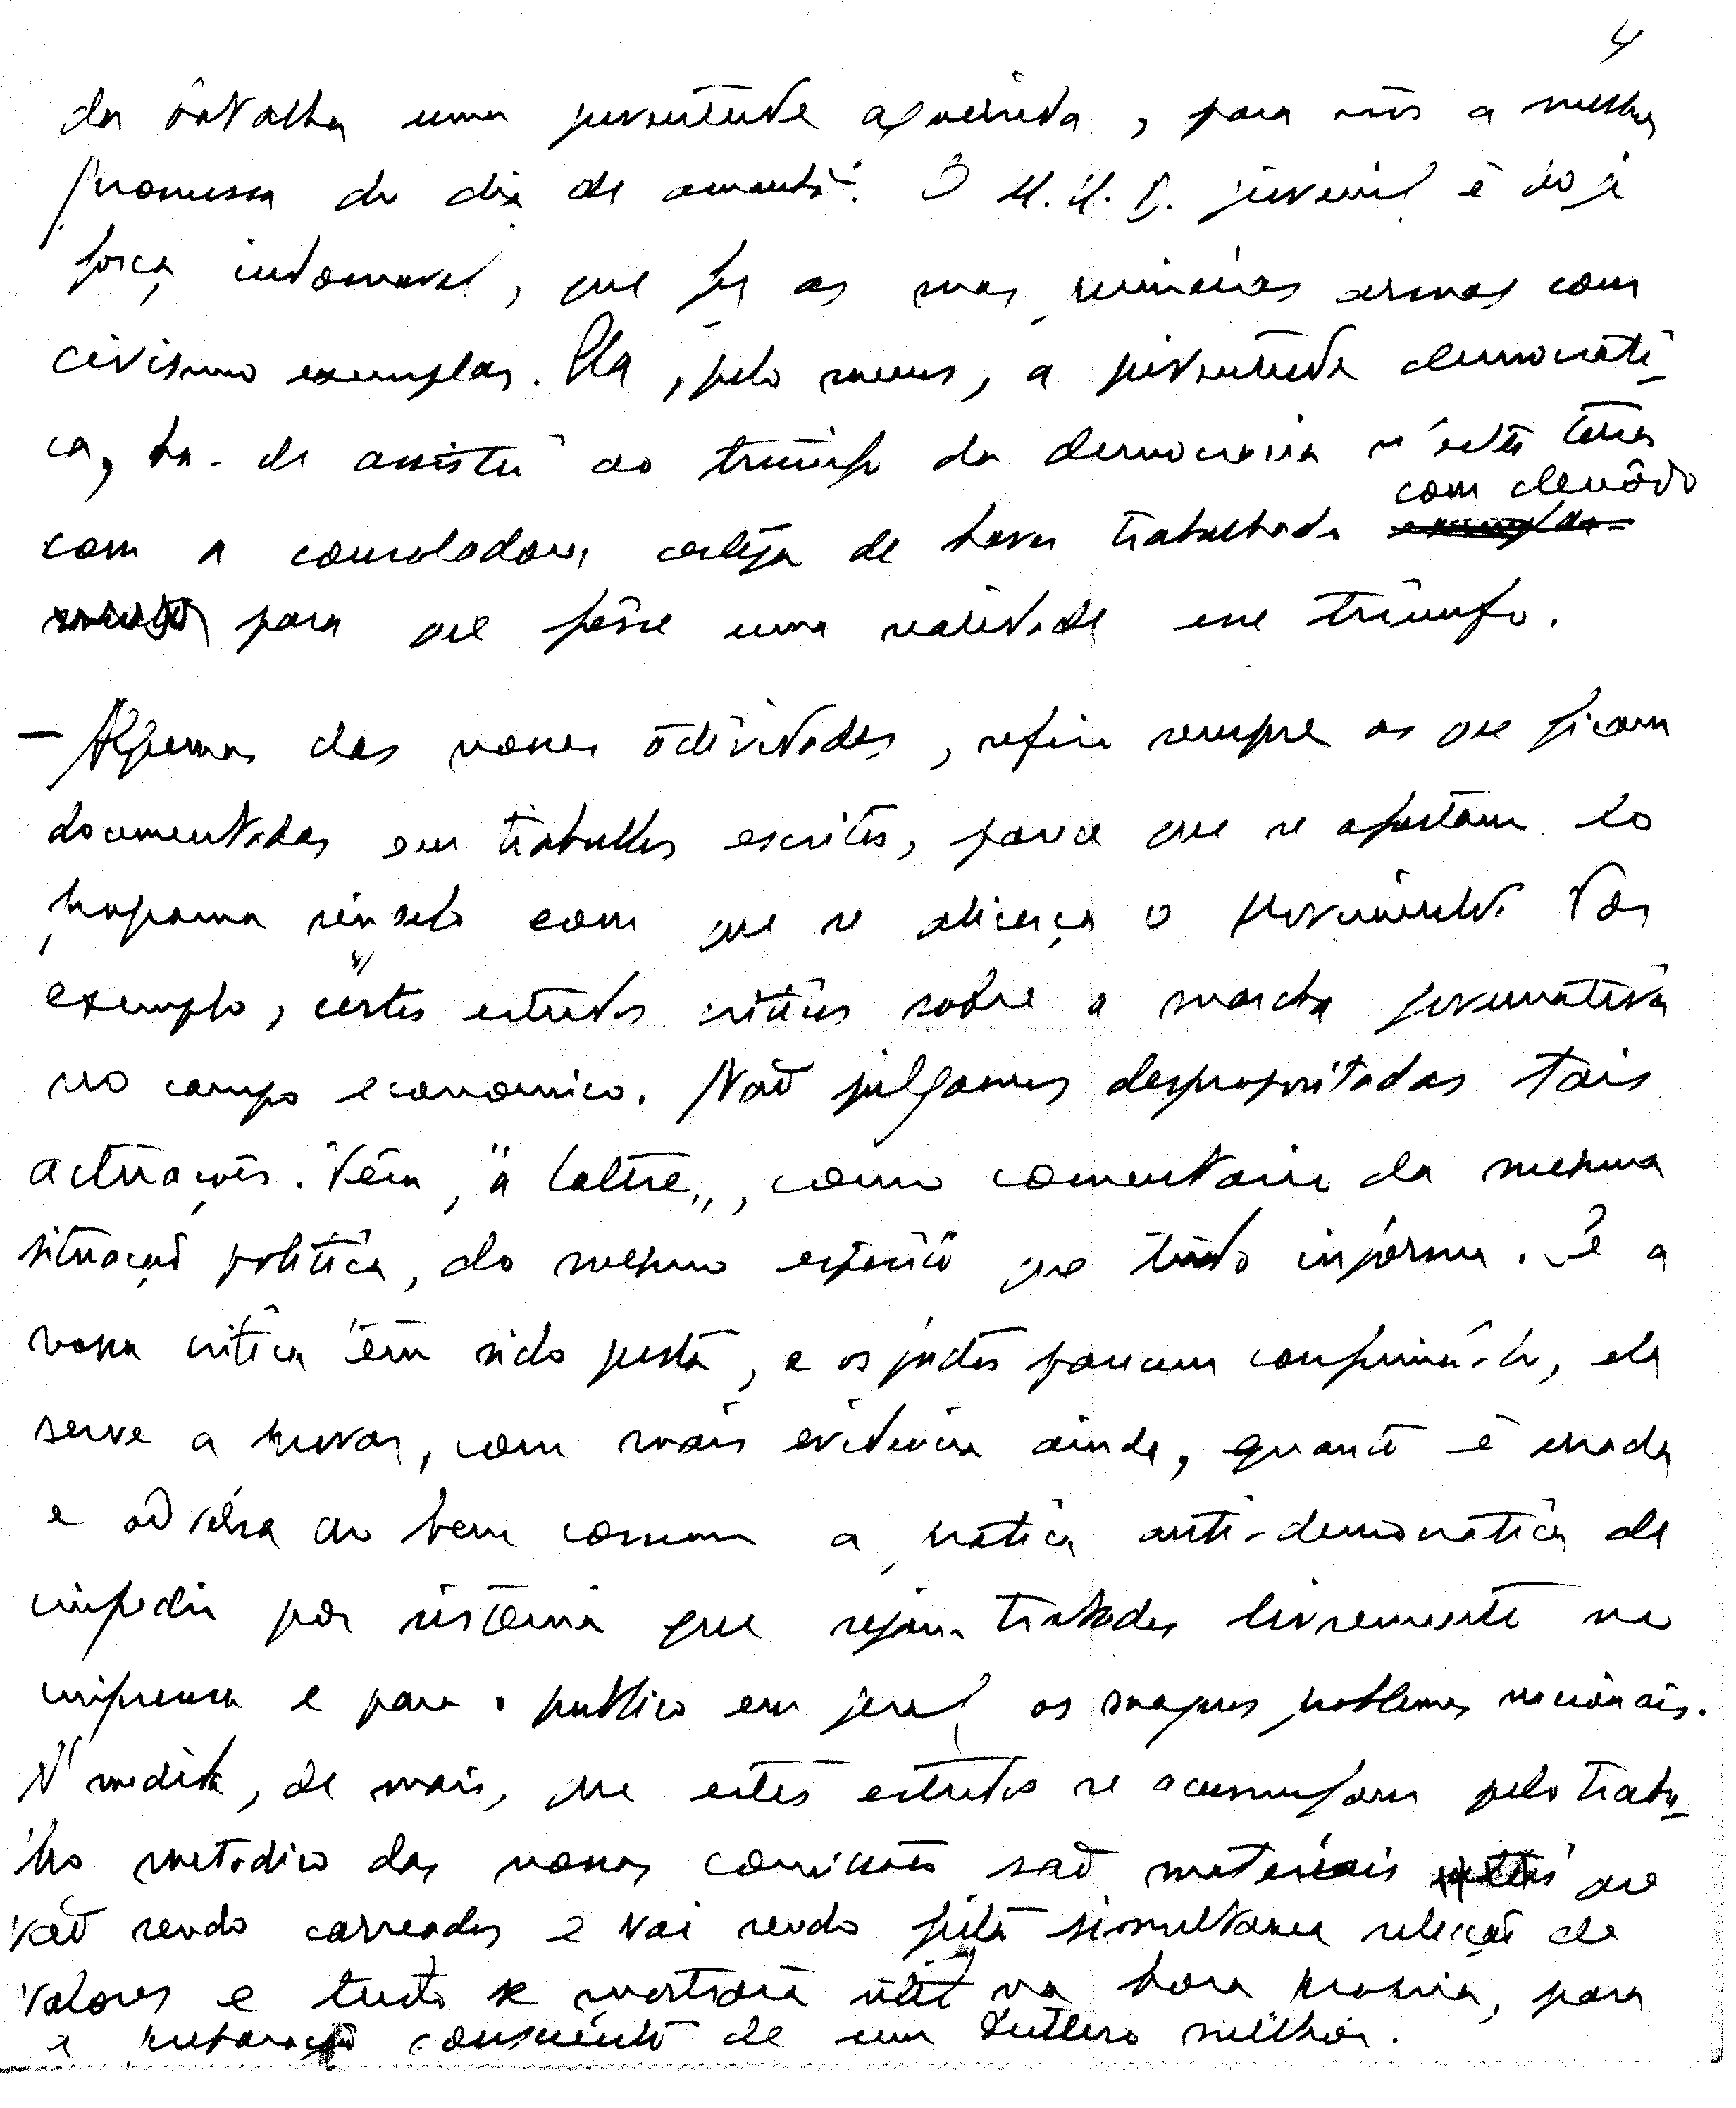 4
da batalha uma juventude aguerrida, para nós a melhor
promessa do dia de amanhã. O M. U. D. juvenil é hoje
força indomavel, que fez as suas primeiras armas com
civismo exemplar. Ela, pelo menos, a juventude democráti-
ca, ha-de assistir ao triunfo da democracia n'esta terra
com denôdo
com a consoladora certeza de haver trabalhado
para que fôsse uma realidade esse triunfo.
- Algumas das nossas actividades, refiro sempre as que ficam
documentadas em trabalhos escritos, parece que se afastam do
programa singelo com que se alicerça o Movimento. Por
exemplo, certos estudos criticos sobre a marcha governativa
no campo economico. Não julgamos despropositadas tais
actuações. Vêm, "à latere", como comentario da mesma
situação politica, do mesmo espirito que tudo informa. Se a
nossa critica tem sido justa, e os factos parecem confirmá-lo, ela
serve a provar, com mais evidencia ainda, quanto é errada
e adversa ao bem comum a pratica anti-democratica de
impedir por sistema que sejam tratados livremente na
imprensa e para o publico em geral os magnos problemas nacionais.
N' medida, de mais, que estes estudos se acumulam pelo traba-
lho metodico das nossas comissões são materiais que
vão sendo carreados e vai sendo feita simultanea selecção de
valores e tudo se mostrará util na hora propria, para
a preparação consciente de um futuro melhor.